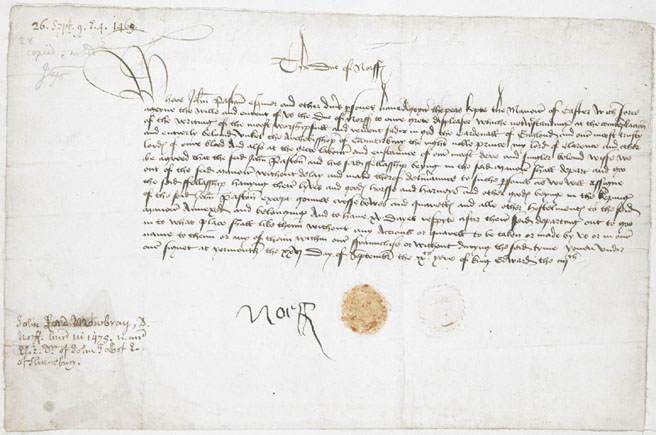 26. Sept. 9. E. 4. 1469
copied
The Duc of Norff
Where John Paston esquier and other divers persones have ayenst the peas kepte the Manoir of Caster with force
ayenst the wille and entent of us the Duc of Norff to oure grete displeaser Whiche notwithstanding at the contemplacion
of the writing of the moost worshipfull and reverent fader in god the Cardenall of England and our moost trusty
and entierly beloved unkil the Archbisshop of Canterbury the right noble prince my lord of Clarence and other
lords of oure blood And also at the grete labour and enstaunce of our moost dere and singler beloved wiffe we
be agreed that the seid John Paston and his seid fellaship beyng in the seid manoir shall depart and goo
out of the seid manoir without delay and make therof deliveraunce to suche persones as we will assigne
the seid fellaship havyng their lyves and goods horsse and harneys and other goods beyng in the kepyng
of the seid John Paston except gonnes crossebowes and quarells and alle other hostelments to the seid
manoir annexed and belonginge And to have xv dayes respyte aftir their seid departing out to goo
in to what place shall like them without any accions or quarell to be taken or made by us or in our
name to them or any of them within our fraunchise or without duryng the seid tyme yoven under
our signet at yermouth the xxvj day of September the ixth yere of king Edward the iiijth
Norff
John Lord Mowbray, D.
Norff. 1475
of John Talbot E.
of Shrewsbury.